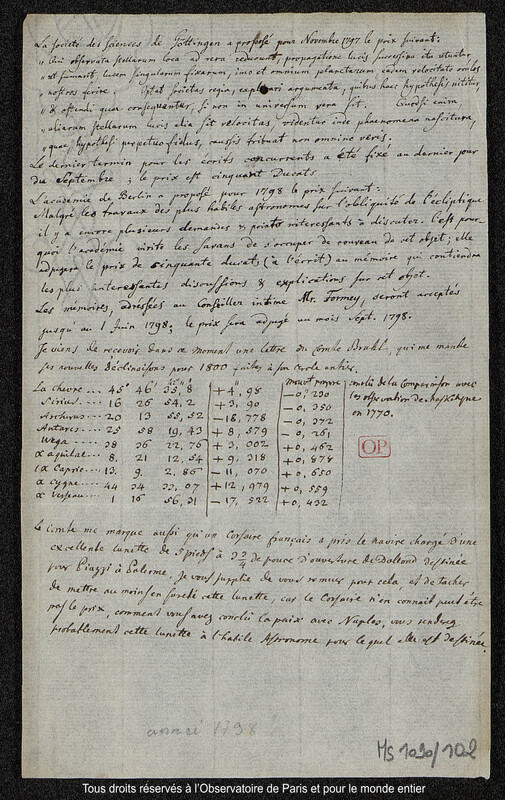 La Societé des Sciences de Göttingen a proposé pour Novembre 1797 le prix suivant:
„ Cui observata stellarum loca ad vera reducunt, propagatione lucis successiva ita utuntur
„ ut sumant, lucem singularum fixarum, imo et omnium planetarum eadem velocitate oculos
„ nostros ferire. Optat societas regia, explorari argumenta, quibus haec hypothesis nititur,
„ & ostendi quae consequantur, si non in universum vera sit. Quodsi enim
„ aliarum stellarum lucis alia sit velocitas, videntur inde phaenomena nascitura,
„ quae, hypothesi perpetuo fidus, caussis tribuat non omnino veris.
Le dernier termin pour les écrits concurrents a été fixé au dernier jour
du Septembre; le prix est cinquant Ducats
L'academie de Berlin a proposé pour 1798 le prix suivant:
Malgré les travaux des plus habiles astronomes sur l'obliquité de l'écliptique
il y a encore plusieurs demandes & points interessants à discuter. C'est pour-
quoi l'académie invite les savans de s'occuper de nouveau de cet objet; elle
adjugera le prix de cinquante ducats (à l'écrit) au mémoire qui contiendra
les plus interessantes discussions & explications sur cet objet.
Les mémoires, adressées au Conseiller intime Mr. Formey, seront acceptés
jusqu'au 1 Juin 1798; le prix sera adjugé au mois Sept. 1798.
Je viens de recevoir dans ce moment une lettre du Comte Bruhl, qui me mande
ses nouvelles déclinaisons pour 1800 faites à son cercle entier.
mouv. propre conclu de la comparaison avec
La chevre... 45° 46' 35,8 + 4,98 - 0,230 les observation de
Sirius.... 16 26 54,2 + 3,90 - 0,350 en 1770.
Arcturus.. 20 13 55,52 - 18,778 - 0,372
Antares... 25 58 19,43 + 8,579 - 0,261
Wega... 38 36 22,76 + 3,002 + 0,462
α aquilae.. 8. 21 12,54 + 9,318 + 0,878
α Capric... 13. 9. 2,86 - 11,070 + 0,650
α cygne... 44 34 33,07 + 12,979 + 0,559
α verseau... 1 16 56,31 - 17,522 + 0,432
OP
Le comte me marque aussi qu'un Corsaire français a pris le navire chargé d'une
excellente lunette de 5 pieds à 3 3/4 de pouce d'ouverture de Dollond destinée
pour Piazzi à Palerme. Je vous supplie de vous remuer pour cela, et de tacher
de mettre au moins en sureté cette lunette, car le Corsaire n'en connait peut être
pas le prix, comment vous avez conclu la paix avec Naples, vous rendrez
probablement cette lunette à l'habile Astronome pour lequel elle est destinée.
année 1798
Ms 1090/102
Tous droits réservés à l'Observatoire de Paris et pour le monde entier